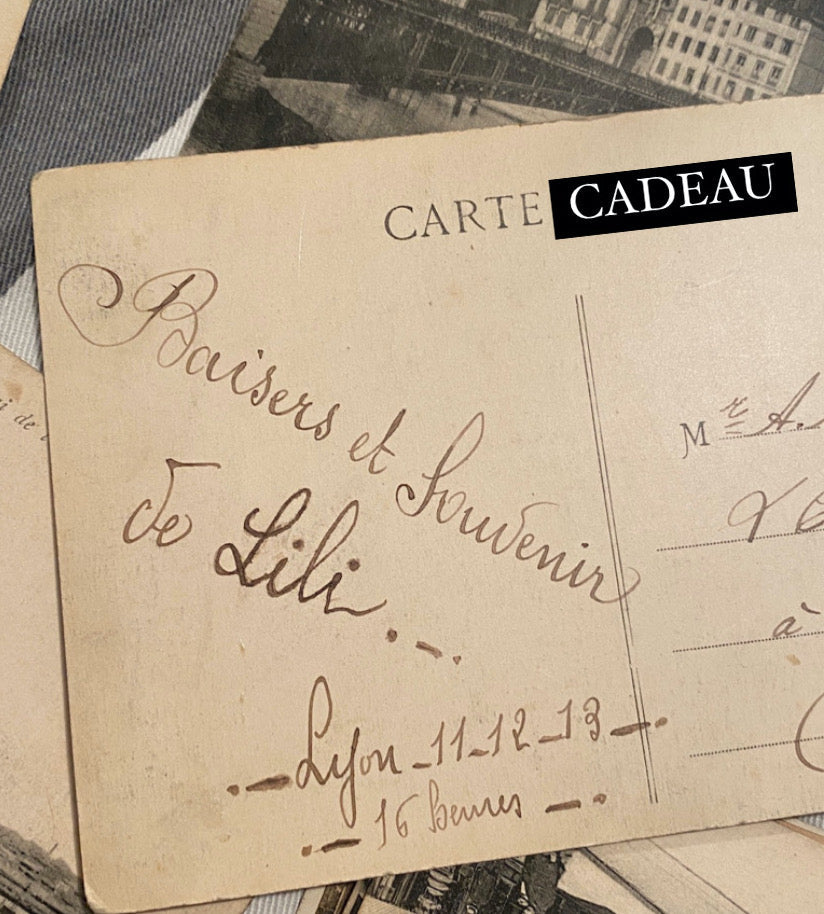 CARTE CADEAU
Baisers et Souvenir
de Lili.
Lyon 11-12-13
16 heures
Mr A.
à